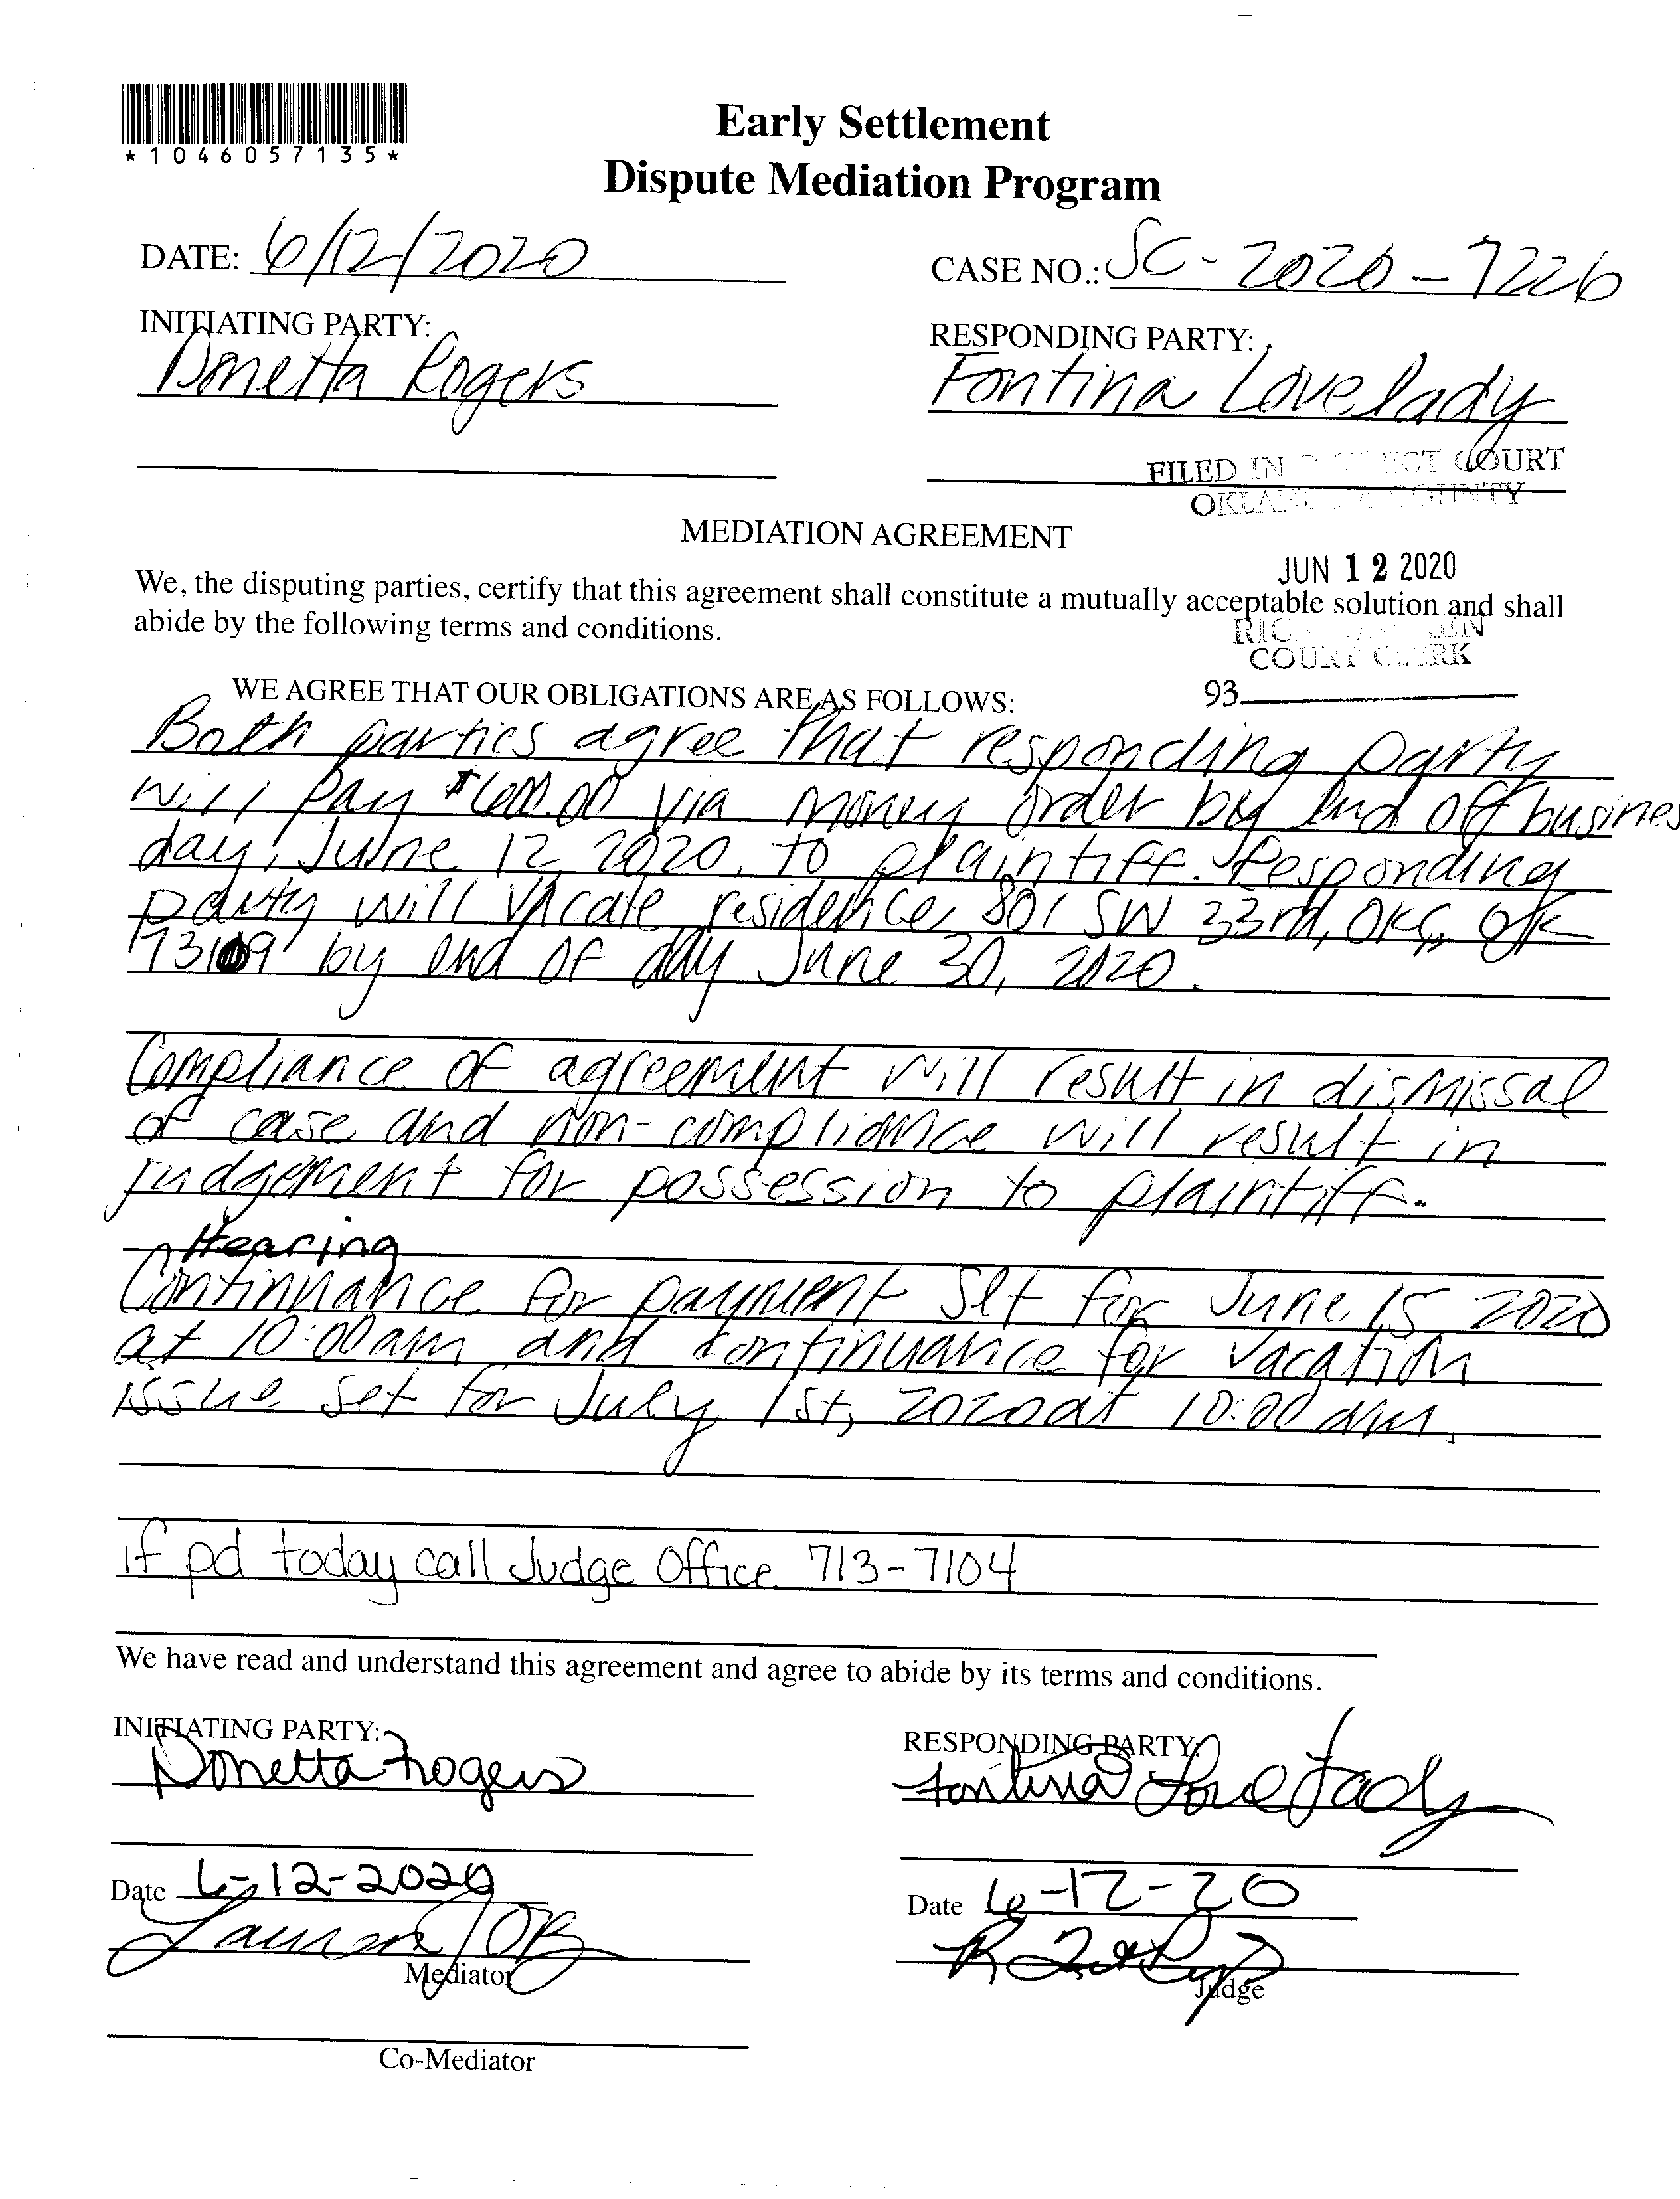 *1046057135*
Early Settlement
Dispute Mediation Program
DATE: 6/12/2020
CASE NO.: SC-2020-7226
INITIATING PARTY:
Donetta Rogers
RESPONDING PARTY:
Fontina Lovelady
FILED IN COURT
COUNTY
MEDIATION AGREEMENT
JUN 12 2020
We, the disputing parties, certify that this agreement shall constitute a mutually acceptable solution and shall
abide by the following terms and conditions.
COURT CLERK
WE AGREE THAT OUR OBLIGATIONS ARE AS FOLLOWS:
93
Both parties agree that responding party
will pay $600.00 via money order by end of busines
day, June 12, 2020, to plaintiff. Responding
party will vacate residence, 801 SW 33rd, OKC, OK
73109 by end of day June 30, 2020.
Compliance of agreement will result in dismissal
of case and non-compliance will result in
judgement for possession to plaintiff.
Hearing
Continuance for payment set for June 15 2020
at 10:00am and continuance for vacation
issue set for July 1st, 2020 at 10:00 am.
if pd today call Judge Office 713-7104
We have read and understand this agreement and agree to abide by its terms and conditions.
INITIATING PARTY:
Donetta Rogers
RESPONDING PARTY
Fontina Lovelady
Date 6-12-2020
Date 6-12-20
Mediator
Judge
Co-Mediator